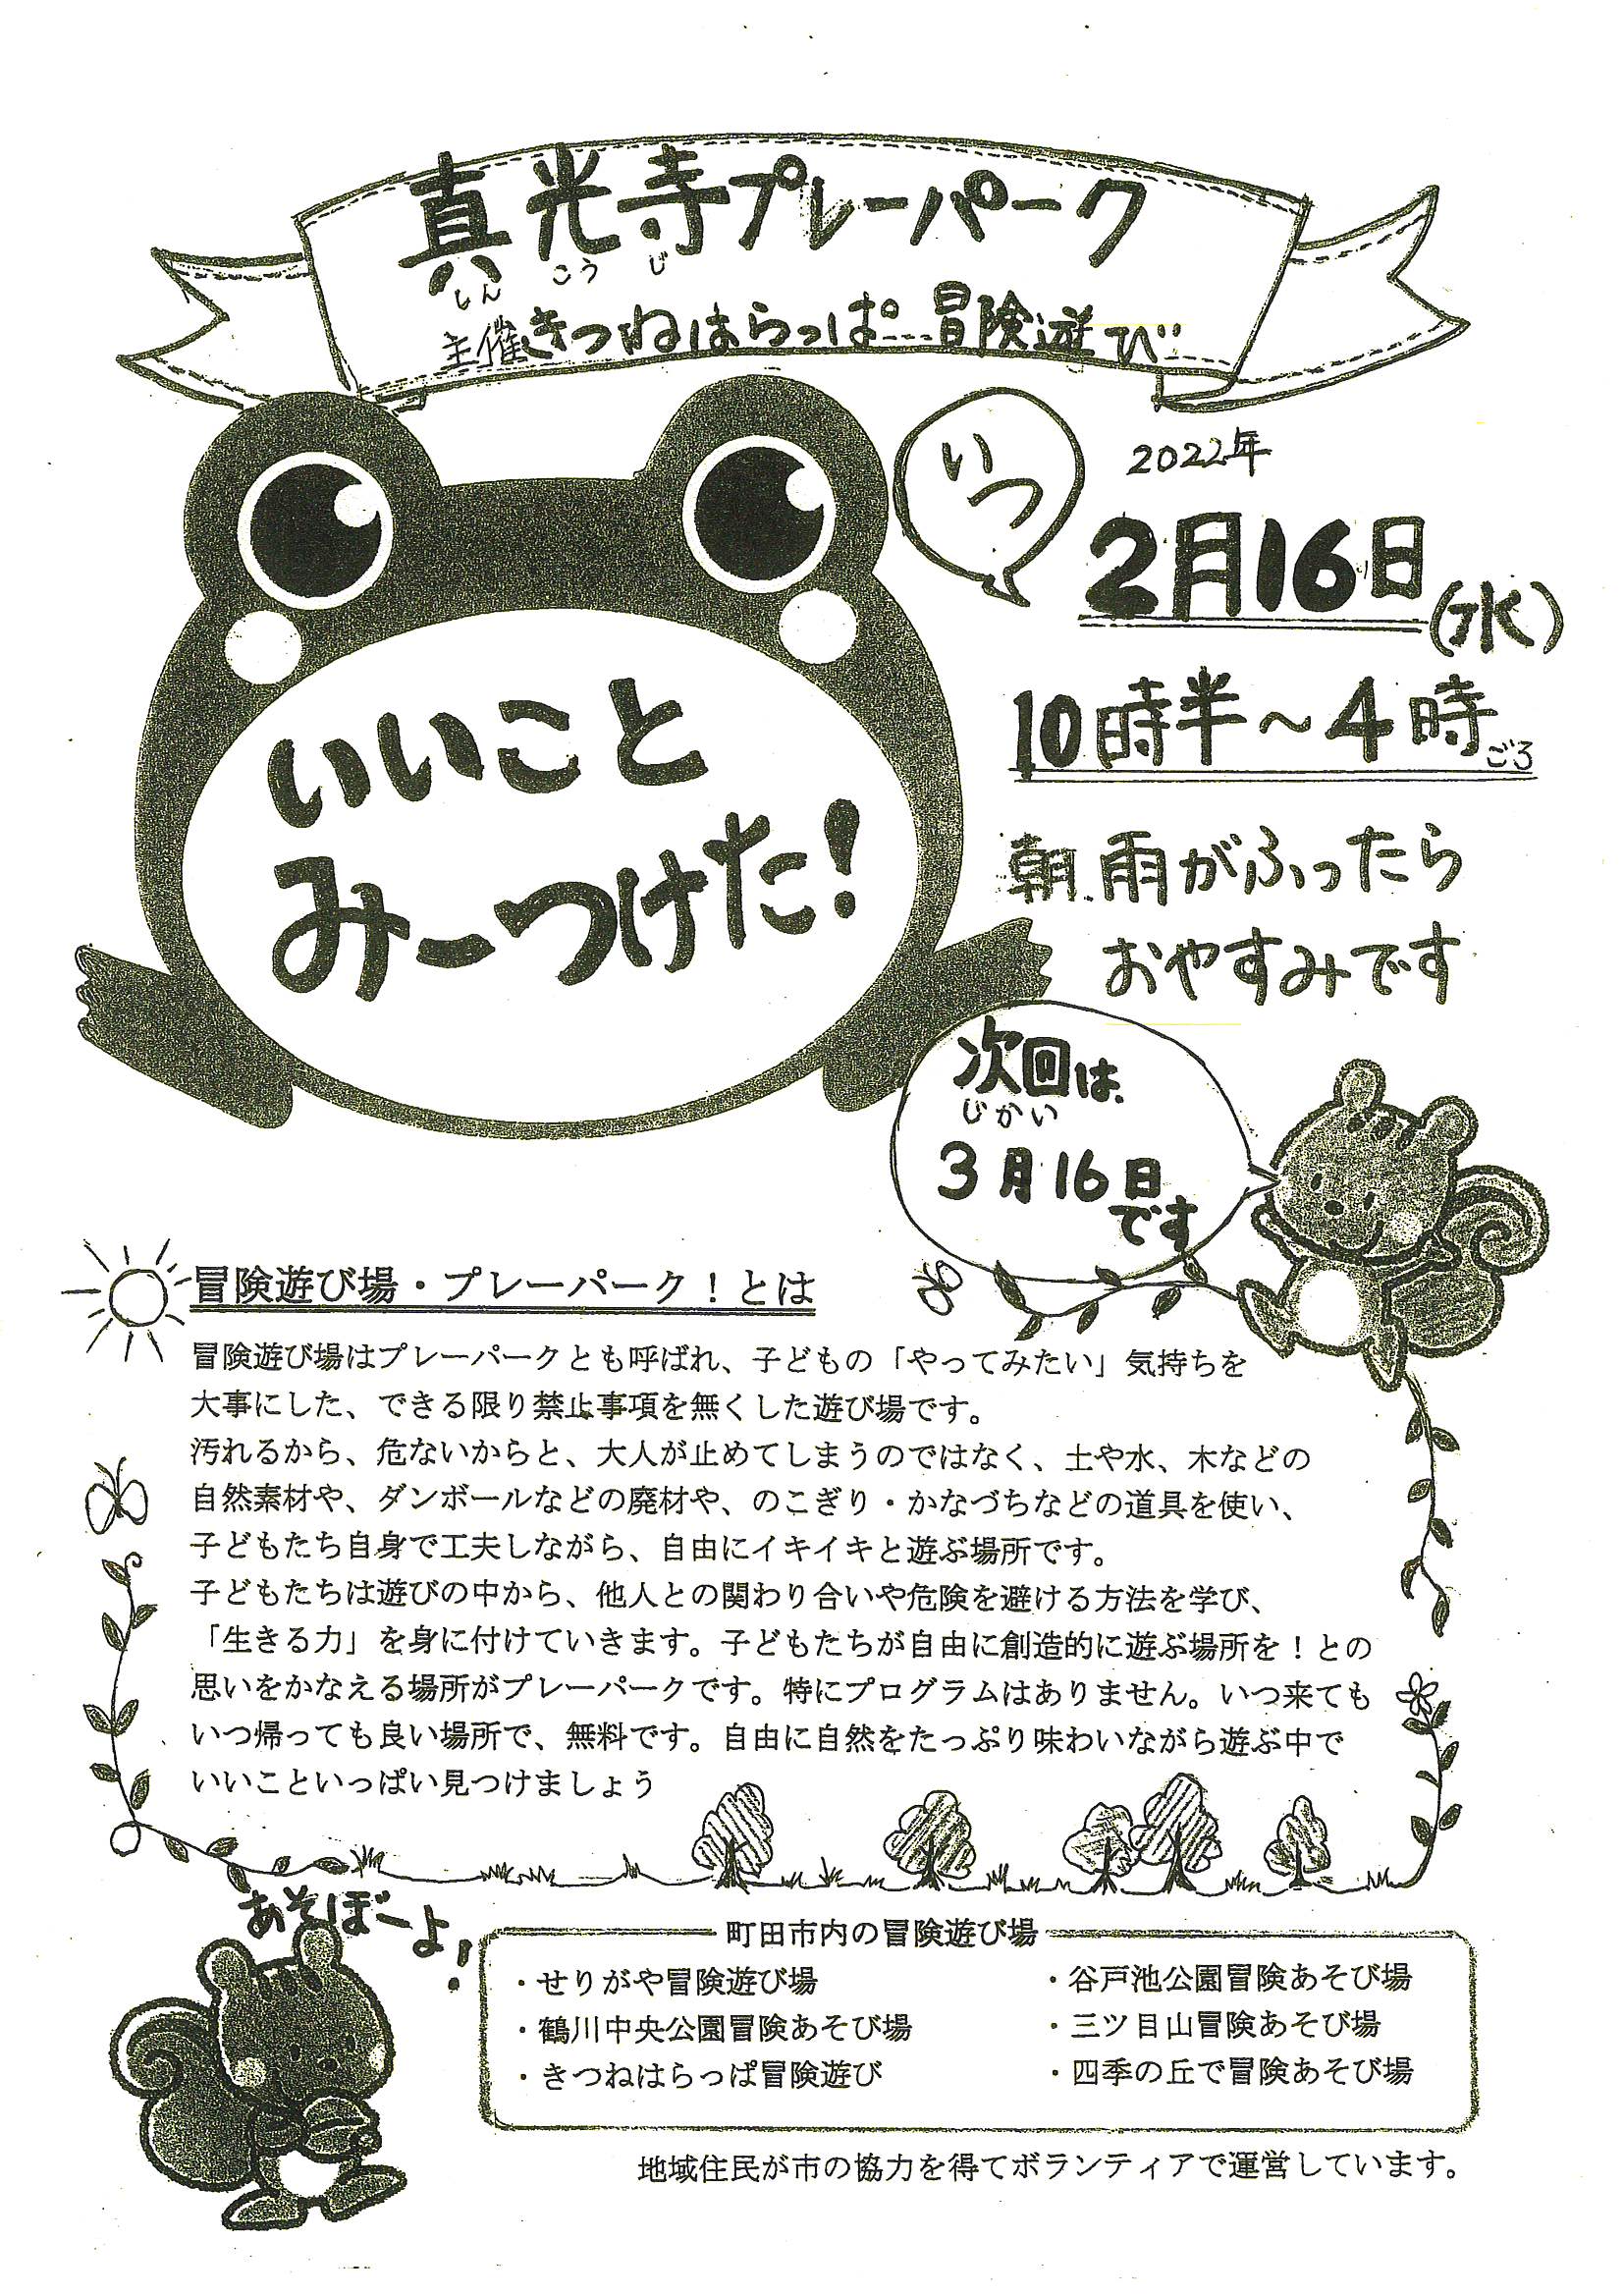 真光寺プレーパーク
しん こう じ
主催きつねはらっぱ冒険遊び
いつ
2022年
2月16日(水)
10時半～4時ごろ
朝、雨がふったら
おやすみです
いいこと
みーつけた!
次回は、
じかい
3月16日
です
冒険遊び場・プレーパーク!とは
冒険遊び場はプレーパークとも呼ばれ、子どもの「やってみたい」気持ちを
大事にした、できる限り禁止事項を無くした遊び場です。
汚れるから、危ないからと、大人が止めてしまうのではなく、土や水、木などの
自然素材や、ダンボールなどの廃材や、のこぎり・かなづちなどの道具を使い、
子どもたち自身で工夫しながら、自由にイキイキと遊ぶ場所です。
子どもたちは遊びの中から、他人との関わり合いや危険を避ける方法を学び、
「生きる力」を身に付けていきます。子どもたちが自由に創造的に遊ぶ場所を!との
思いをかなえる場所がプレーパークです。特にプログラムはありません。いつ来ても
いつ帰っても良い場所で、無料です。自由に自然をたっぷり味わいながら遊ぶ中で
いいこといっぱい見つけましょう
あそぼーよ!
町田市内の冒険遊び場
・せりがや冒険遊び場
・鶴川中央公園冒険あそび場
・きつねはらっぱ冒険遊び
・谷戸池公園冒険あそび場
・三ツ目山冒険あそび場
・四季の丘で冒険あそび場
地域住民が市の協力を得てボランティアで運営しています。